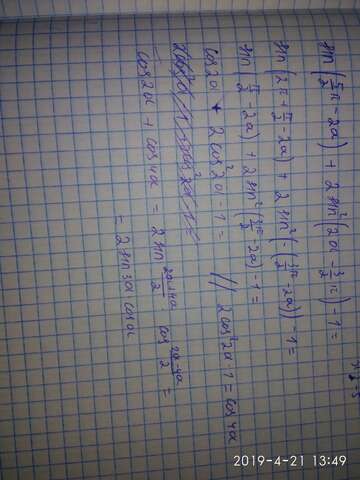 sin (5/2 π − 2α) + 2 sin² (2α − 3/2 π) − 1 =
sin (2π + π/2 − 2α) + 2 sin² (−(3π/2 − 2α)) − 1 =
sin (π/2 − 2α) + 2 sin² (3π/2 − 2α) − 1 =
cos 2α + 2 cos² 2α − 1 = // 2 cos² 2α − 1 = cos 4α
cos 2α + cos 4α = 2 sin (2α+4α)/2 · cos (2α−4α)/2 =
= 2 sin 3α cos α
2019-4-21 13:49